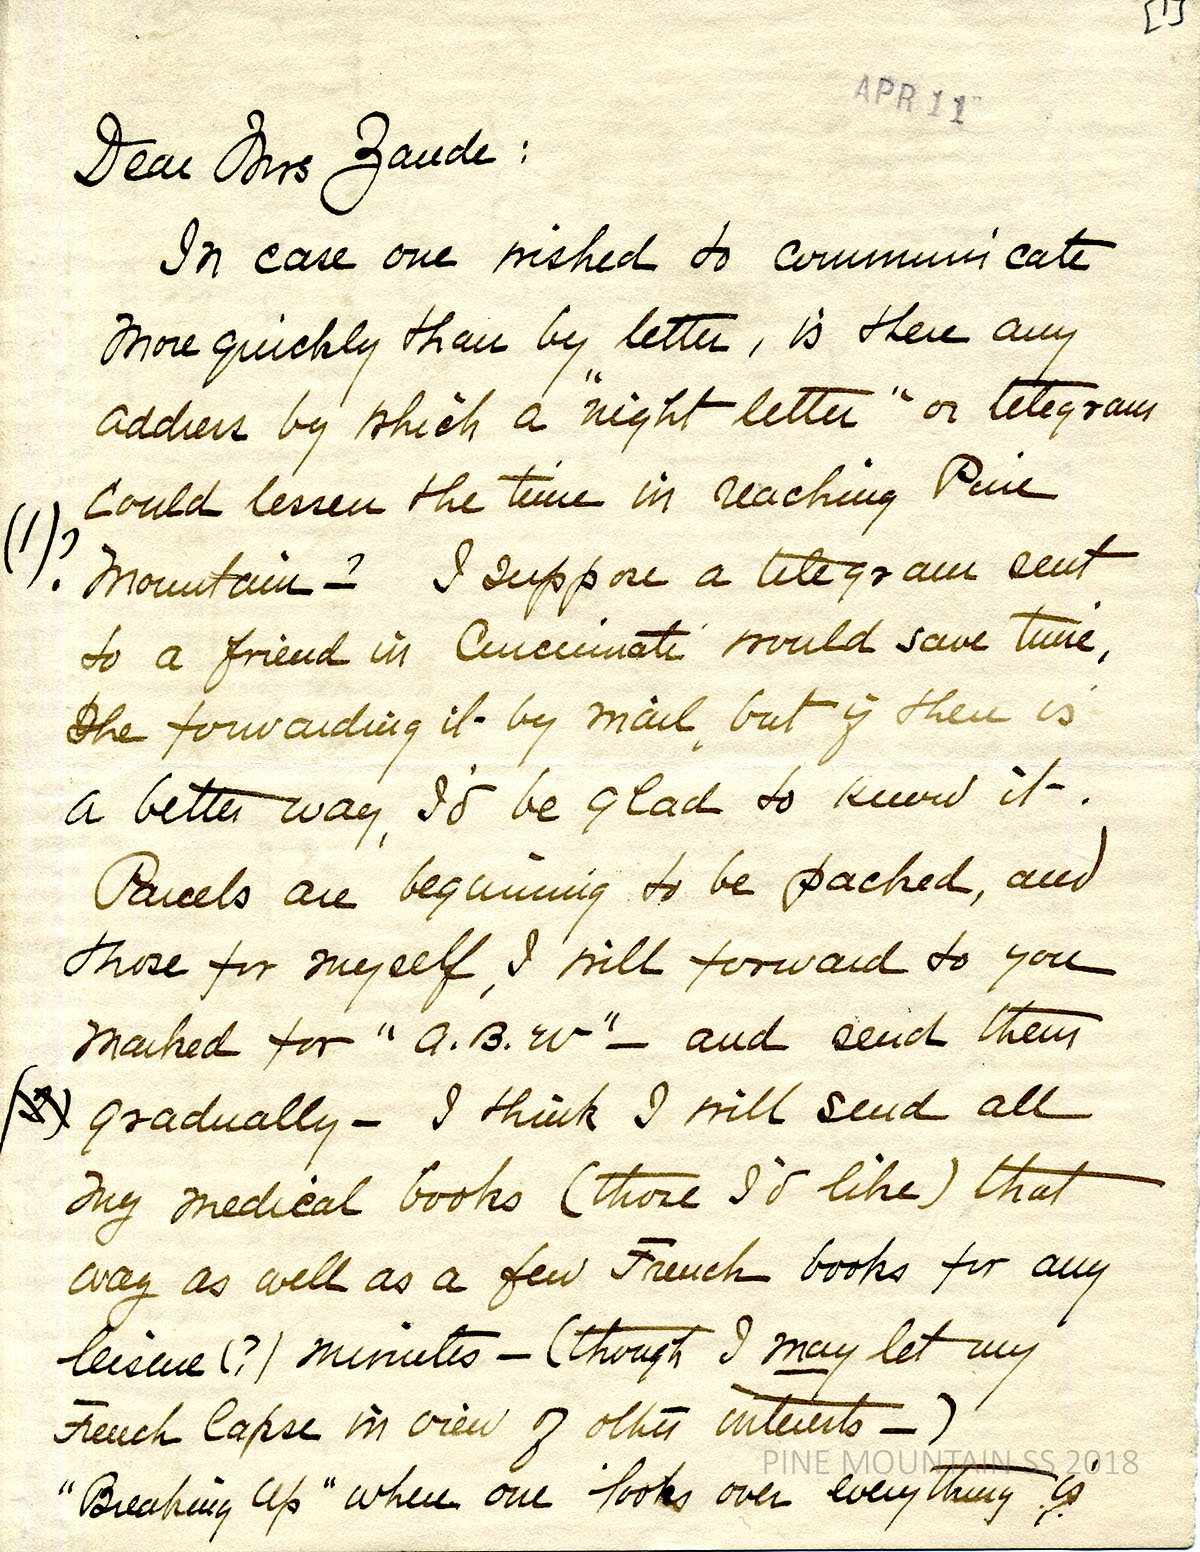 [1]
APR 11
Dear Mrs Zande:
In case one wished to communicate
more quickly than by letter, is there any
address by which a "night letter" or telegram
could lessen the time in reaching Pine
(1)?
Mountain–? I suppose a telegram sent
to a friend in Cincinnati would save time,
she forwarding it by mail, but if there is
a better way, I'd be glad to know it.
Parcels are beginning to be packed, and
those for myself, I will forward to you
marked for "A.B.W"– and send them
gradually– I think I will send all
my medical books (those I'd like) that
way as well as a few French books for any
leisure (?) minutes–(though I may let my
French lapse in view of other interests–)
"Breaking up" when one looks over everything is
PINE MOUNTAIN SS 2018